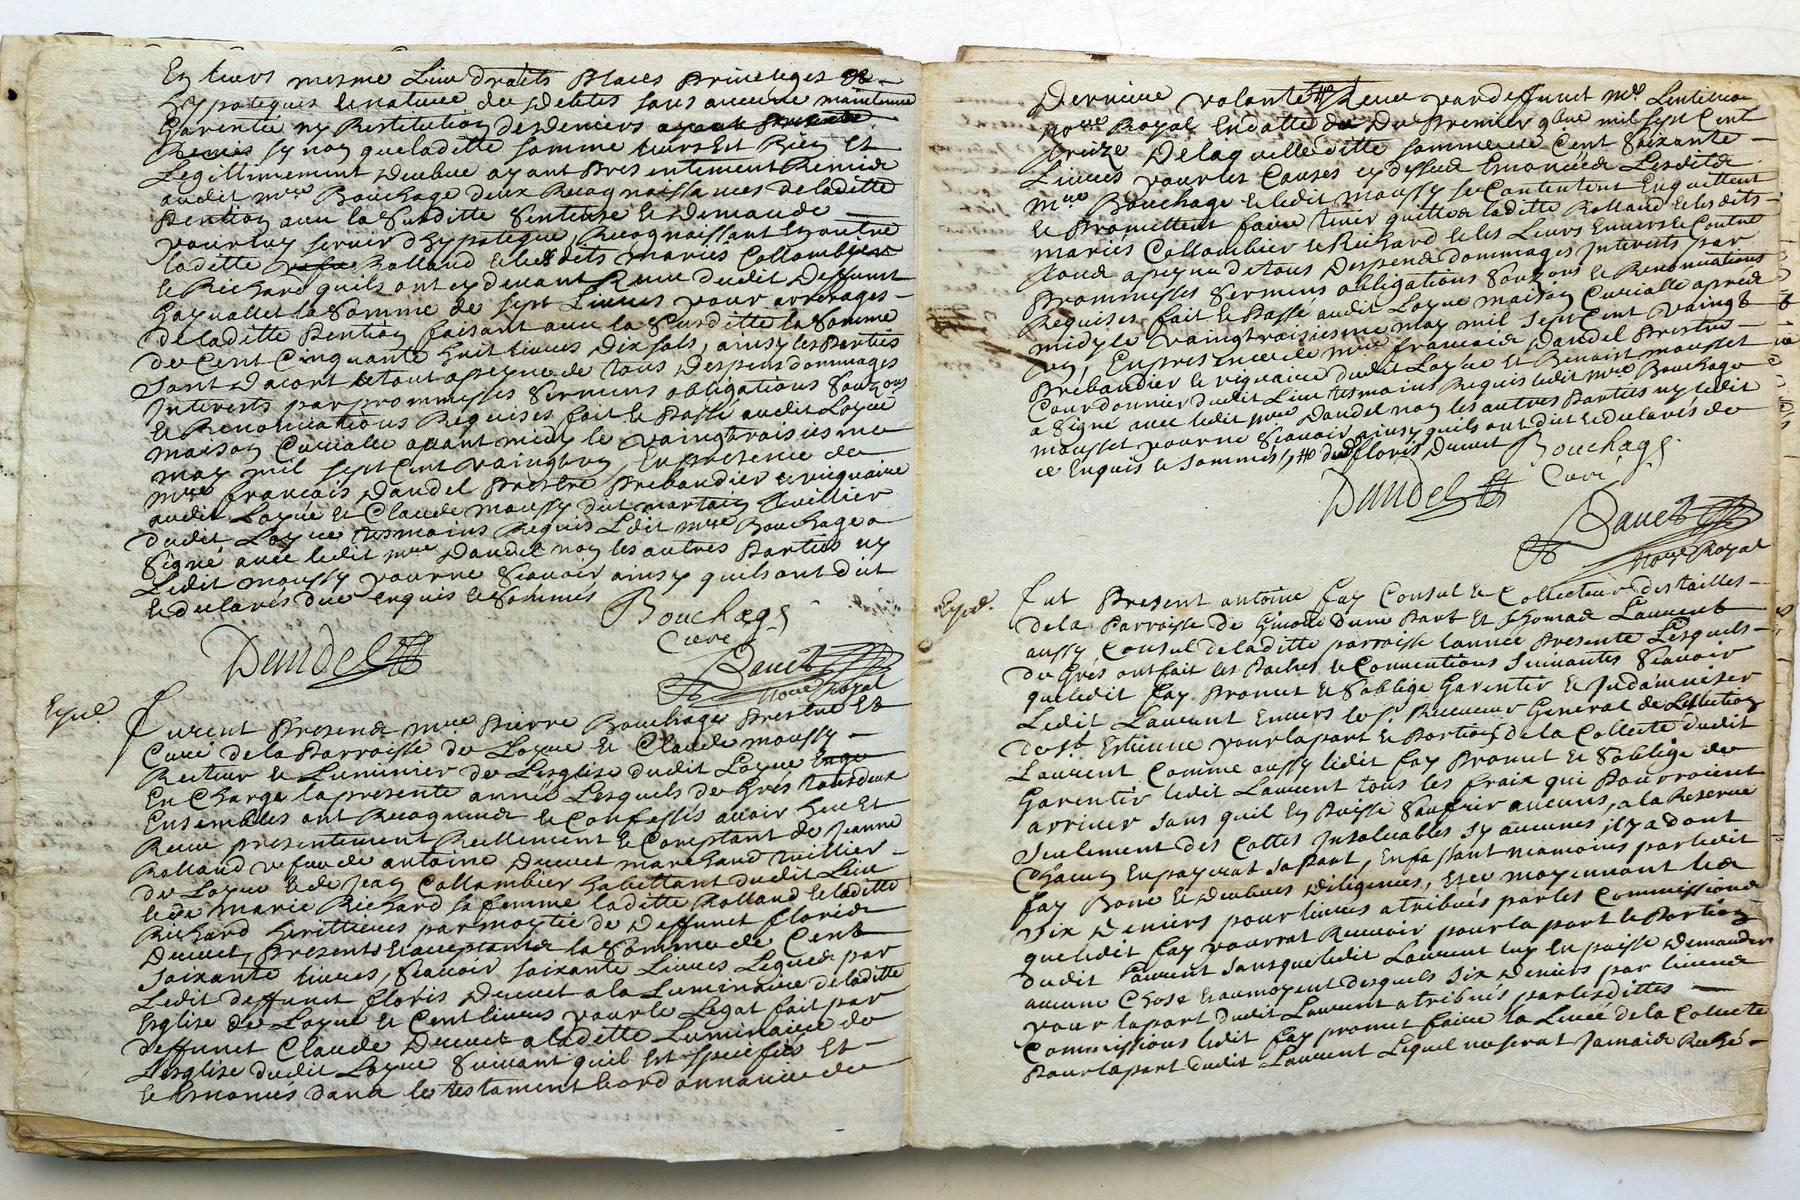 En leurs mesme Lieu droits places privileges et
hypoteques et nature de debtes sans aucune maintenue
Garentie ny Restitution de deniers
sy non que laditte somme leurs est Bien et
Legittimement deubue ayant presentement Remis
audit mre Bouchage deux Recognoissances de laditte
Pention avec la susditte sentence et demande
pour luy servir d'hypoteque, Recognoissant en outre
laditte Rolland et lesdits mariés Collombier
et Richard quils ont cy devant Receu dudit deffunct
la somme de sept Livres pour arrerages
de laditte Pention faisant avec la susditte la somme
de Cent Cinquante huit livres dix sols, ainsy les Parties
sont dacort le tout a peyne de tous despens dommages
Interests par prommesses sermens obligations soumissions
et Renonciations Requises fait et Passé audit Loyne
maison Curialle avant midy le vaingtroisiesme
may mil sept Cent vaingt un, En presence de
mre francois Dandel Prestre Prebandier et viquaire
audit Loyne et Claude moussy dit martain
dudit Loyne tesmoins Requis Ledit mre Bouchage a
signé avec ledit mre Dandel non les autres Parties ny
Ledit moussy pour ne sçavoir ainsy quils ont dit
et declarés de ce enquis et sommés
Bouchage
Curé
Dandel
notre Royal
Expé.
Furent Presents mre Pierre Bouchage Prestre et
Curé de la Parroisse de Loyne et Claude moussy
Recteur et Luminier de Lesglise dudit Loyne
En Charge la presente année Lesquels de Grés tous deux
Ensembles ont Recogneus et Confessés avoir heu et
Receu presentement Reellement et Comptant de Jeanne
Rolland vefve de antoine Ducret marchand
de Loyne et de Jean Collombier habittant dudit Lieu
et de marie Richard sa femme laditte Rolland et laditte
Richard herittieres par moytié de deffunct floris
Ducret, presents et acceptants la somme de Cent
soixante livres, sçavoir soixante Livres Legués par
Ledit deffunct floris Ducret a la Luminaire de laditte
Esglise de Loyne et Cent livres pour le Legat fait par
deffunct Claude Ducret a laditte Luminaire de
Lesglise dudit Loyne suivant quil est speciffié et
et Enoncés dans les testament et ordonnance de
Derniere volonté Receu par deffunct me
nore Royal En datte du du Premier 9bre mil sept Cent
treize De laquelle ditte somme de Cent soixante
Livres pour les Causes cy dessus Enoncées Lesdits
mre Bouchage et ledit moussy se Contentent Enquittent
et Promettent faire tenir quitte laditte Rolland et lesdits
mariés Collombier et Richard et les Leurs Envers et Contre
tous a peyne de tous Despens dommages Interests par
Prommesses sermens obligations soumissions et Renonciations
Requises fait et Passé audit Loyne maison Curialle apres
midy le vaingtroisiesme may mil sept Cent vaingt
un, En presence de mre francois Dandel Prestre
Prebandier et viquaire dudit Loyne et Benoist mousset
Courdonnier dudit Lieu tesmoins Requis ledit mre Bouchage
a signé avec ledit mre Dandel non les autres Parties ny ledit
mousset pour ne sçavoir ainsy quils ont dit et declarés de
ce Enquis et sommés, dudit floris Ducret
Bouchage
Curé
Dandel
notre Royal
Expé.
Fut Present antoine fay Consul et Collecteur des tailles
de la Parroisse de dune Part et thomas Laurent
aussy Consul de laditte parroisse lannée Presente Lesquels
de Grés ont fait les Pactes et Conventions suivantes sçavoir
que ledit fay Promet et soblige Garentir et Indamniser
Ledit Laurent Envers le sr. Receveur General de Lellection
de st Estienne pour la part et Portion de la Collecte dudit
Laurent Comme aussy ledit fay Promet et soblige de
Garentir ledit Laurent tous les frais qui Pourroient
arriver sans quil En Puisse soufrir aucuns, a la Reserve
seulement des Cottes Insolvables sy aucunes il y a dont
Chacun En payerat sa part, En faisant neamoins par ledit
fay Bone et deubues diligences, et ce moyennant les
six deniers pour livres atribués par les Commissions
que ledit fay pourrat Recevoir pour la part et Portion
dudit Laurent sans que ledit Laurent luy En puisse demander
aucune Chose et au moyent desquels six deniers par livres
pour la part dudit Laurent atribués par lesdittes
Commissions ledit fay promet faire la Levée de la Collecte
Pour la part dudit Laurent Lequel ne serat Jamais Reché-